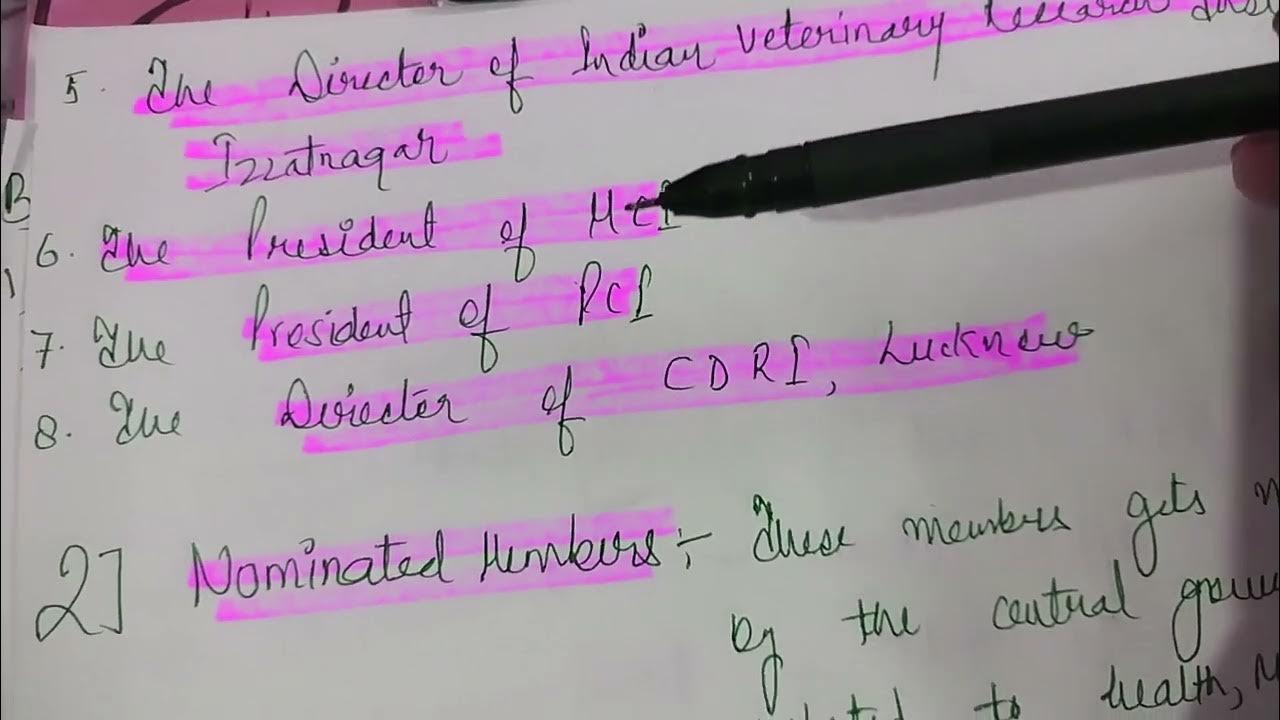 5. The Director of Indian Veterinary Research Inst
Izzatnagar
B
6. The President of MCI
7. The President of PCI
8. The Director of CDRI, Lucknow
2] Nominated Members :- These members gets
by the central
to health,